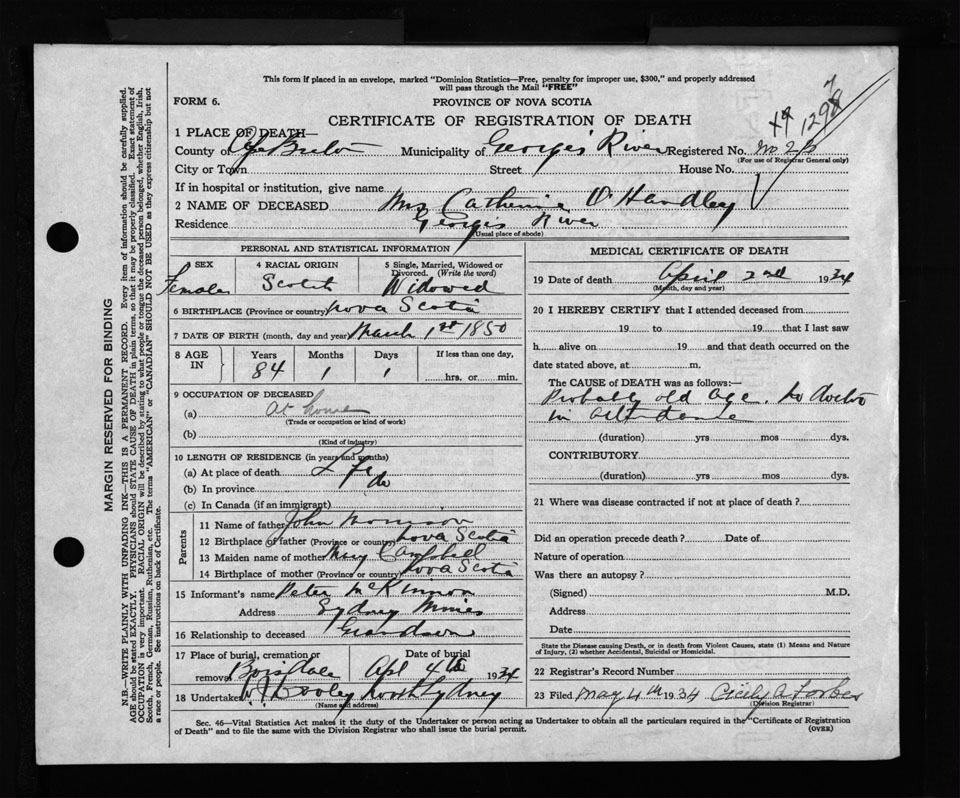 This form if placed in an envelope, marked "Dominion Statistics—Free, penalty for improper use, $300," and properly addressed
will pass through the Mail "FREE"
FORM 6.
PROVINCE OF NOVA SCOTIA
CERTIFICATE OF REGISTRATION OF DEATH
1 PLACE OF DEATH—
County of Cape Breton Municipality of Georges River Registered No.
(For use of Registrar General only)
City or Town Street House No.
If in hospital or institution, give name
2 NAME OF DECEASED Mrs Catherine O'Handley
Residence Georges River
(Usual place of abode)
PERSONAL AND STATISTICAL INFORMATION
3 SEX Female
4 RACIAL ORIGIN Scotch
5 Single, Married, Widowed or Divorced. (Write the word) Widowed
6 BIRTHPLACE (Province or country) Nova Scotia
7 DATE OF BIRTH (month, day and year) March 1st 1850
8 AGE IN Years 84 Months 1 Days 1 If less than one day, hrs. or min.
9 OCCUPATION OF DECEASED
(a) At home
(Trade or occupation or kind of work)
(b)
(Kind of industry)
10 LENGTH OF RESIDENCE (in years and months)
(a) At place of death Life
(b) In province do
(c) In Canada (if an immigrant)
Parents
11 Name of father John Morrison
12 Birthplace of father (Province or country) Nova Scotia
13 Maiden name of mother Mary Campbell
14 Birthplace of mother (Province or country) Nova Scotia
15 Informant's name Peter McKinnon
Address Sydney Mines
16 Relationship to deceased Grandson
17 Place of burial, cremation or removal Boisdale
Date of burial Apl 4th 1934
18 Undertaker W J Dooley North Sydney
(Name and address)
MEDICAL CERTIFICATE OF DEATH
19 Date of death April 2nd 1934
(Month, day and year)
20 I HEREBY CERTIFY that I attended deceased from
19 to 19 that I last saw
h alive on 19 and that death occurred on the
date stated above, at m.
The CAUSE of DEATH was as follows:—
Probably old age. No doctor
in attendance
(duration) yrs mos dys.
CONTRIBUTORY
(duration) yrs mos dys.
21 Where was disease contracted if not at place of death?
Did an operation precede death? Date of
Nature of operation
Was there an autopsy?
(Signed) M.D.
Address
Date
State the Disease causing Death, or in death from Violent Causes, state (1) Means and Nature
of Injury, (2) whether Accidental, Suicidal or Homicidal.
22 Registrar's Record Number
23 Filed May 4th 1934 Cicily A Forbes
(Division Registrar)
Sec. 46—Vital Statistics Act makes it the duty of the Undertaker or person acting as Undertaker to obtain all the particulars required in the "Certificate of Registration
of Death" and to file the same with the Division Registrar who shall issue the burial permit.
(OVER)
MARGIN RESERVED FOR BINDING
N.B.—WRITE PLAINLY WITH UNFADING INK—THIS IS A PERMANENT RECORD. Every item of information should be carefully supplied.
AGE should be stated EXACTLY. PHYSICIANS should STATE CAUSE OF DEATH in plain terms, so that it may be properly classified. Exact statement of
OCCUPATION is very important. RACIAL ORIGIN will be described by stating to what people or tongue the deceased person belonged, whether English, Irish,
Scotch, French, German, Russian, Ruthenian, etc. The terms "AMERICAN" or "CANADIAN" SHOULD NOT BE USED as they express citizenship but not
a race or people. See instructions on back of Certificate.